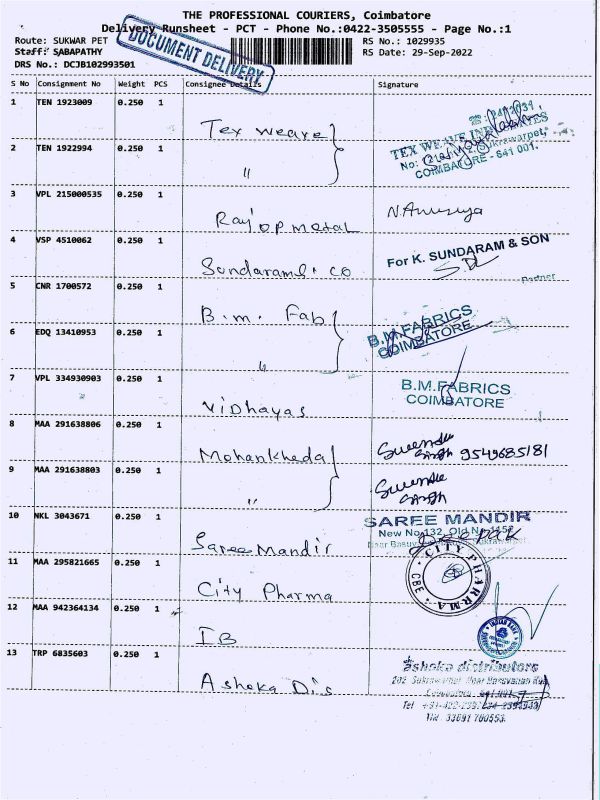 THE PROFESSIONAL COURIERS, Coimbatore
Delivery Runsheet - PCT - Phone No.:0422-3505555 - Page No.:1
Route: SUKWAR PET
RS No.: 1029935
Staff: SABAPATHY
RS Date: 29-Sep-2022
DRS No.: DCJB102993501
DOCUMENT DELIVERY
S No Consignment No Weight PCS Consignee Details Signature
1 TEN 1923009 0.250 1
Tex weave
TEX WEAVE
COIMBATORE - 641 001.
2 TEN 1922994 0.250 1
"
3 VPL 215000535 0.250 1
Raj op metal
N.Anusuya
4 VSP 4510062 0.250 1
Sundarams. co
For K. SUNDARAM & SON
Partner
5 CNR 1700572 0.250 1
B.m. Fab
B.M.FABRICS
COIMBATORE
6 EDQ 13410953 0.250 1
"
7 VPL 334930903 0.250 1
vidhayas
B.M.FABRICS
COIMBATORE
8 MAA 291638806 0.250 1
Mohankheda
9549685181
9 MAA 291638803 0.250 1
"
Singh
10 NKL 3043671 0.250 1
Saree Mandir
SAREE MANDIR
New No.132, Old No.
11 MAA 295821665 0.250 1
City Pharma
CITY PHARMA
CBE
12 MAA 942364134 0.250 1
IB
INDIAN BANK
13 TRP 6835603 0.250 1
Ashoka Dis
Ashoka distributors